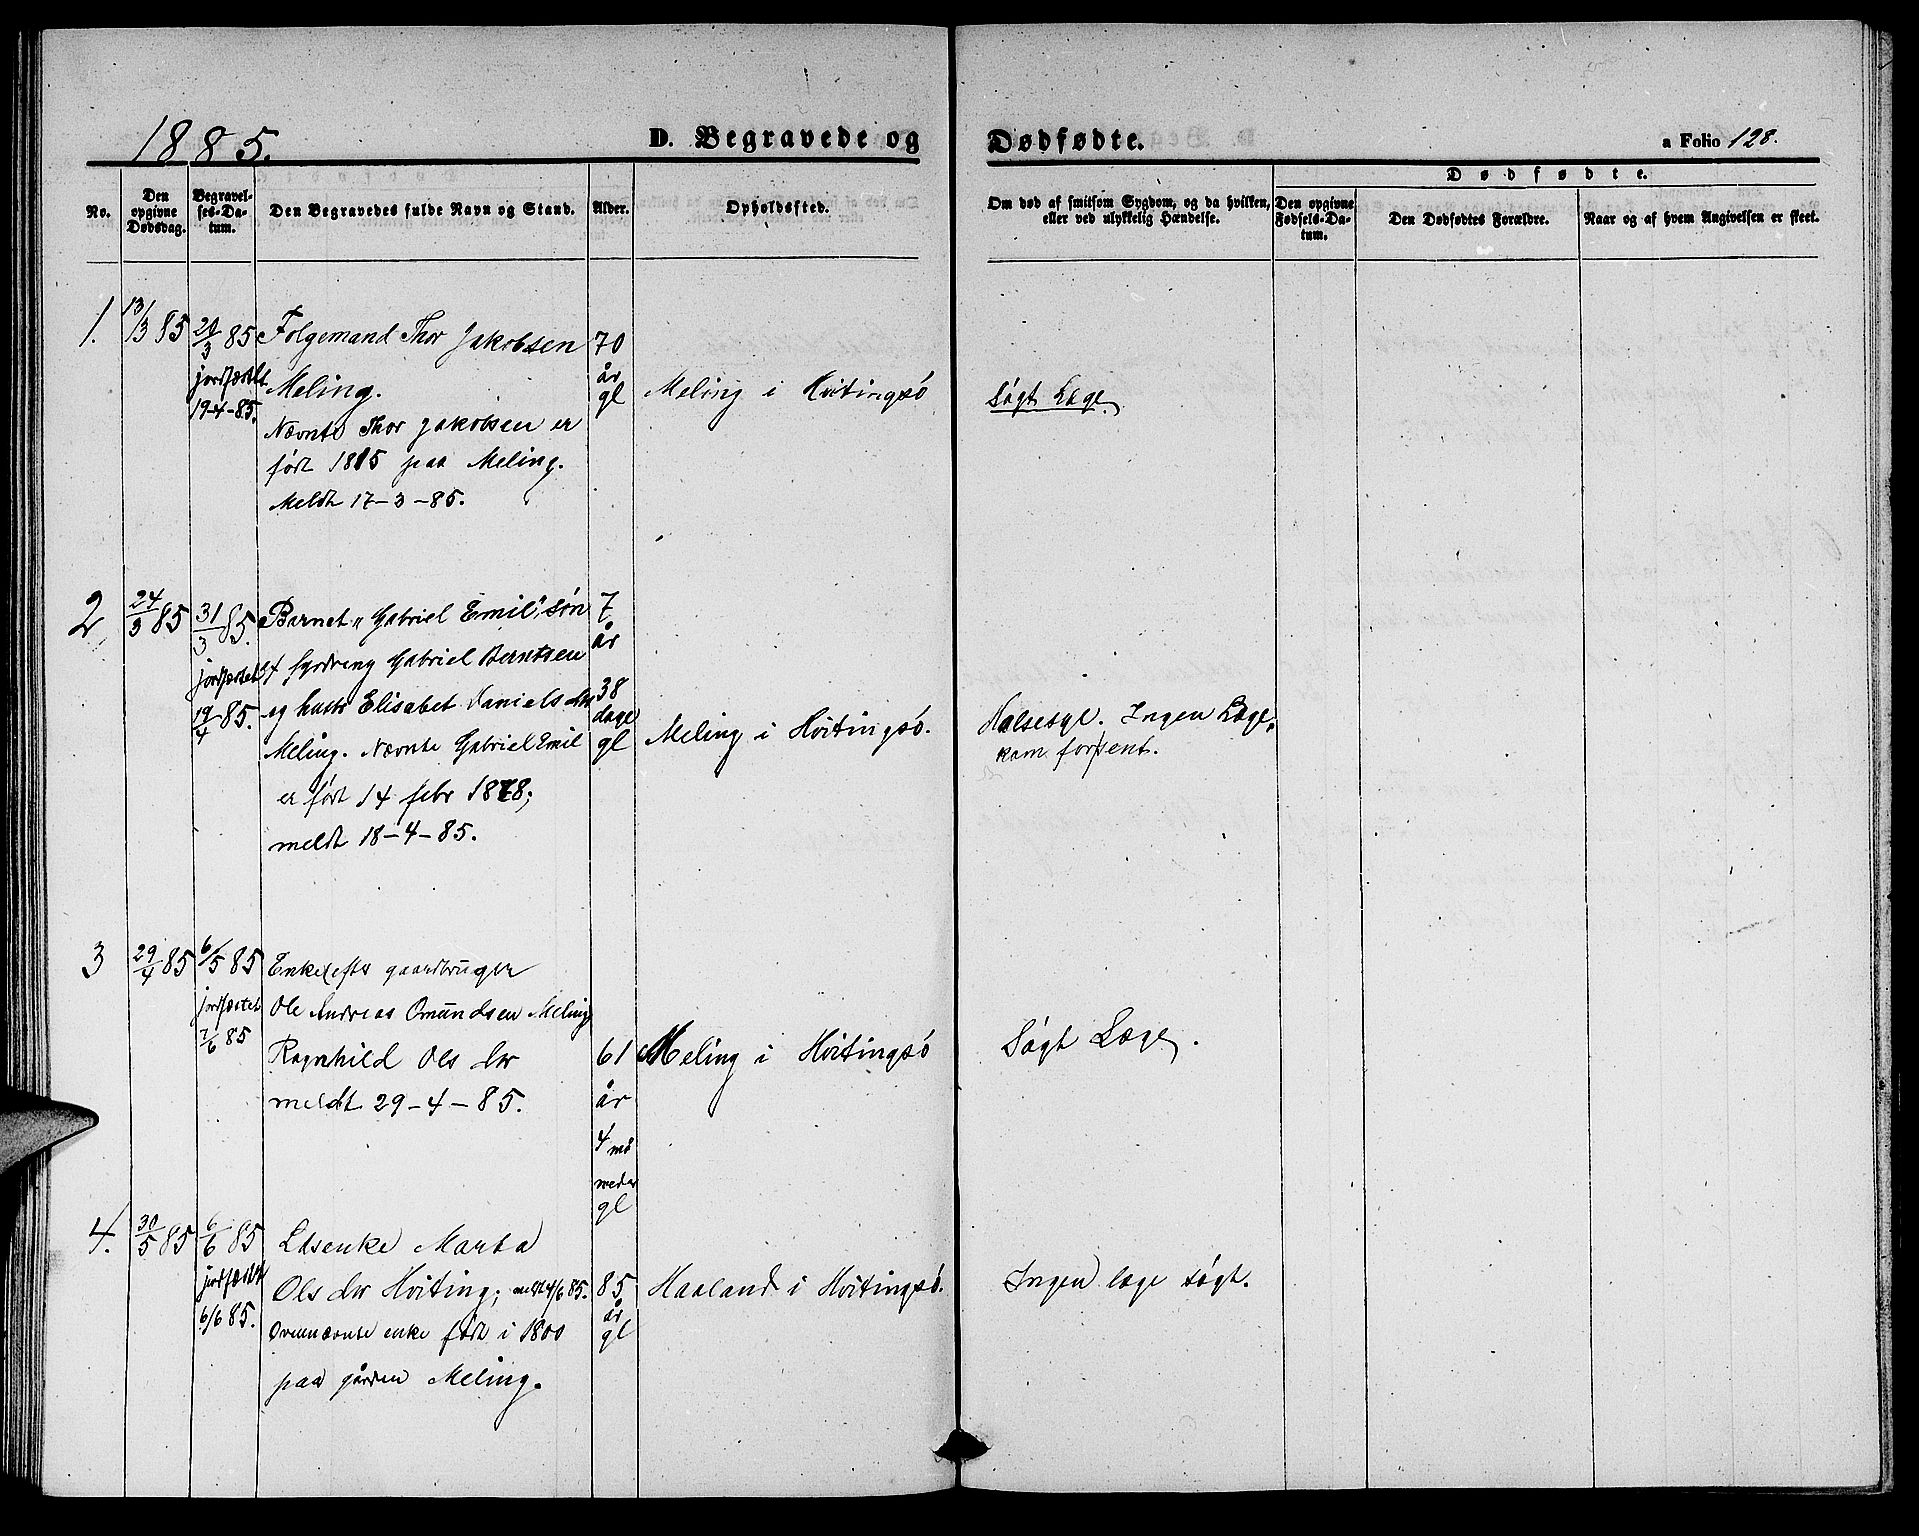 1885.
D. Begravede og Dødfødte.
a Folio 128.
No.
Den opgivne Dødsdag.
Begravelses-Datum.
Den Begravedes fulde Navn og Stand.
Alder.
Opholdssted.
Om død af smitsom Sygdom, og da hvilken, eller ved ulykkelig Hændelse.
Dødfødte.
Den opgivne Fødsels-Datum.
Den Dødfødtes Forældre.
Naar og af hvem Angivelsen er skeet.
1.
13/3 85
24/3 85
jordfæstet
19-4-85.
Folgemand Thor Jakobsen
Meling.
Nævnte Thor Jakobsen er
født 1815 paa Meling.
Meldt 17-3-85.
70
år
gl
Meling i Hvitingsö
Søgt Læge.
2
24/3 85
31/3 85.
jordfæstet
19/4 85.
Barnet "Gabriel Emil", søn
af Gabriel Berntsen
og hustr Elisabet Daniels dtr
Meling. Nævnte Gabriel Emil
er født 14 febr 1878;
meldt 18-4-85.
7
år
38
dage
gl
Meling i Hvitingsö.
Halsesyl. Ingen Læge,
kom forsent.
3
29/4 85
6/5 85
jordfæstet
7/6 85
Enke efter gaardbruger
Ole Andreas Omundsen Meling
Ragnhild Ols dtr
meldt 29-4-85.
61
år
4 må
neder
gl
Meling i Hvitingsö
Søgt Læge.
4.
30/5 85
6/6 85
jordfæstet
6/6 85.
Ldsenke Marta
Ols dtr Hviting; meldt 4/6 85.
Ovennævnte enke født i 1800
paa gården Meling.
85
år
gl
Haaland i Hvitingsö.
Ingen læge søgt.